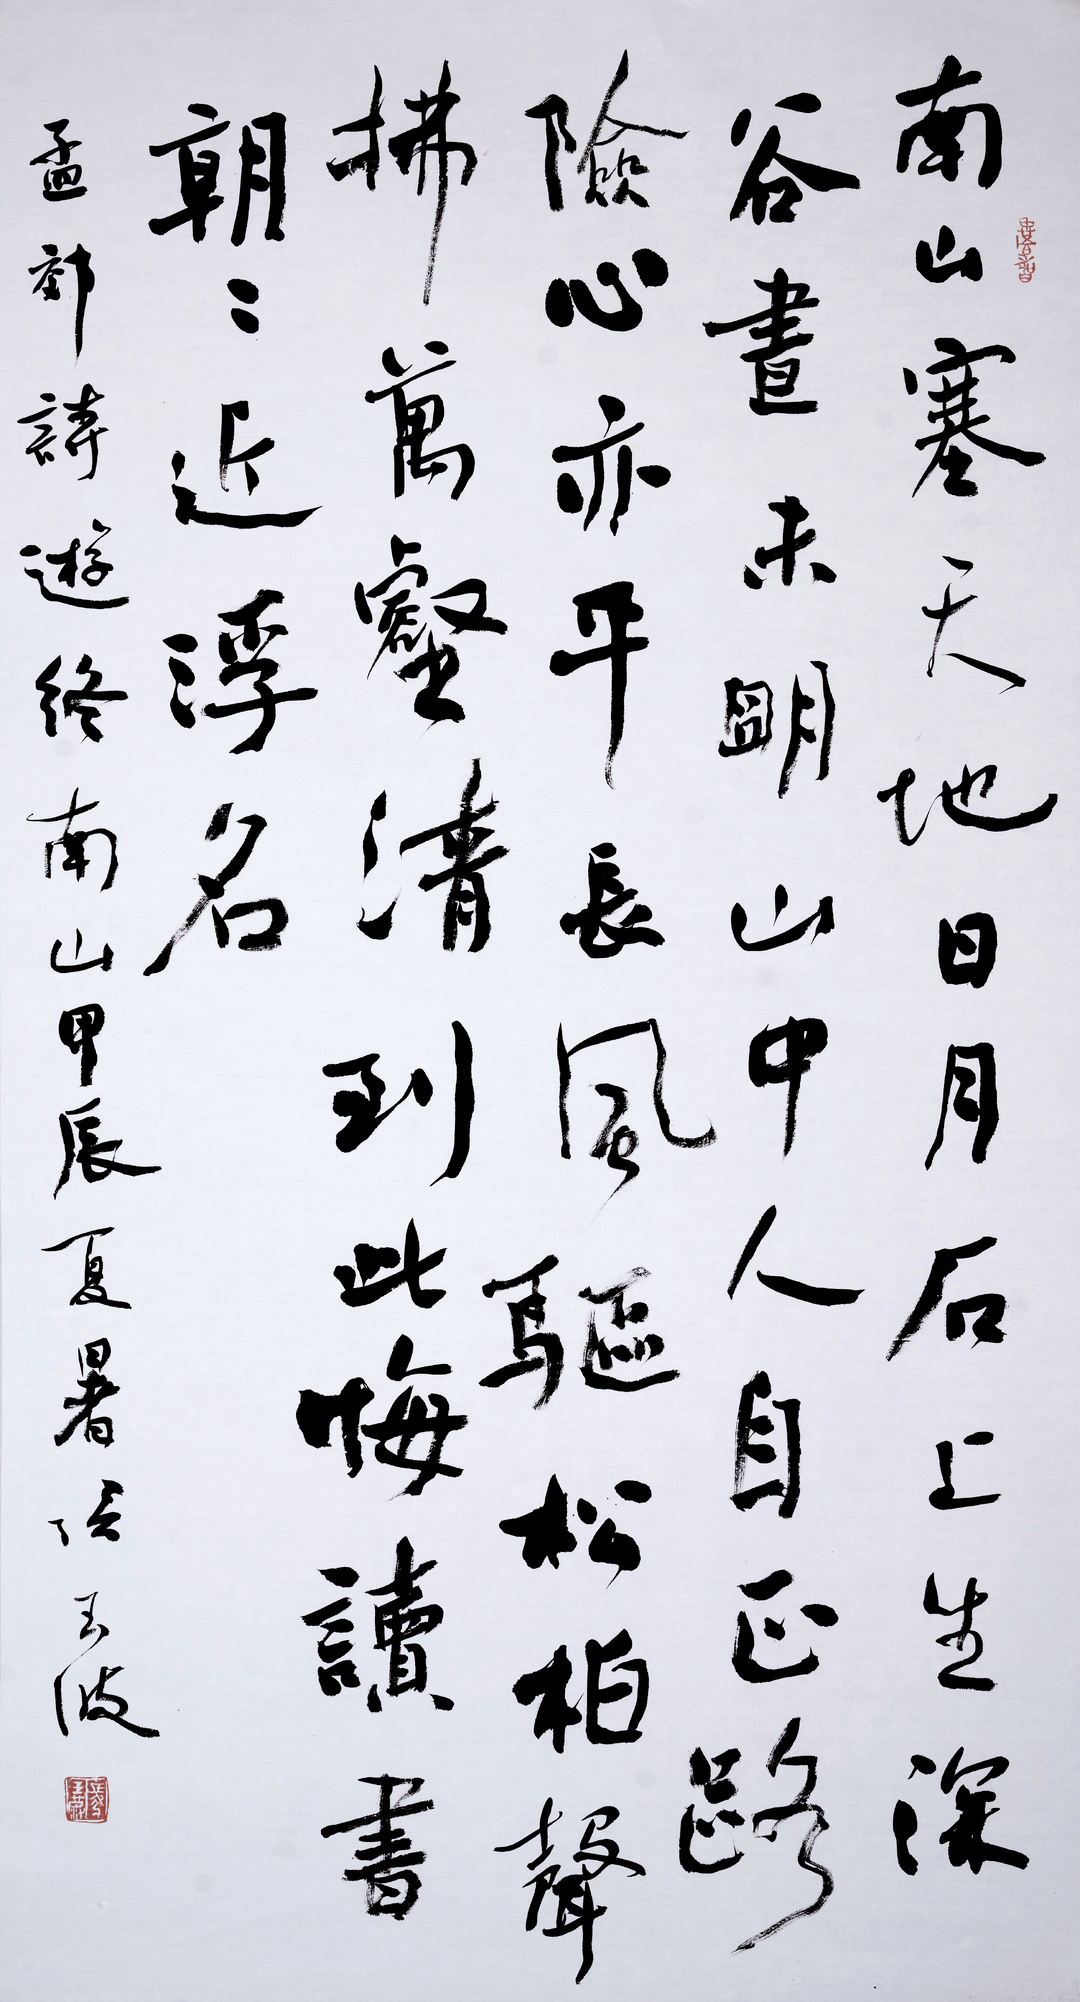 南山塞天地日月石上生深
谷晝未明山中人自正路
險心亦平長風驅松柏聲
拂萬壑清到此悔讀書
朝〻近浮名
孟郊詩遊終南山甲辰夏暑張玉波